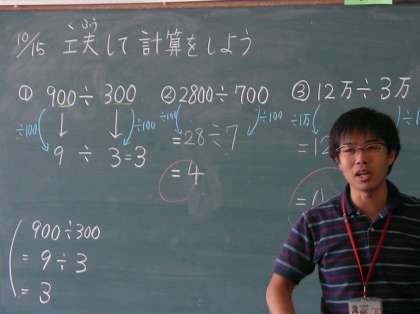 10/15 工夫して計算をしよう
ふう
① 900÷300
÷100 ÷100
9 ÷ 3=3
② 2800÷700
÷100 ÷100
=28÷7
=4
③ 12万÷3万
÷1万
=12
900÷300
=9÷3
=3